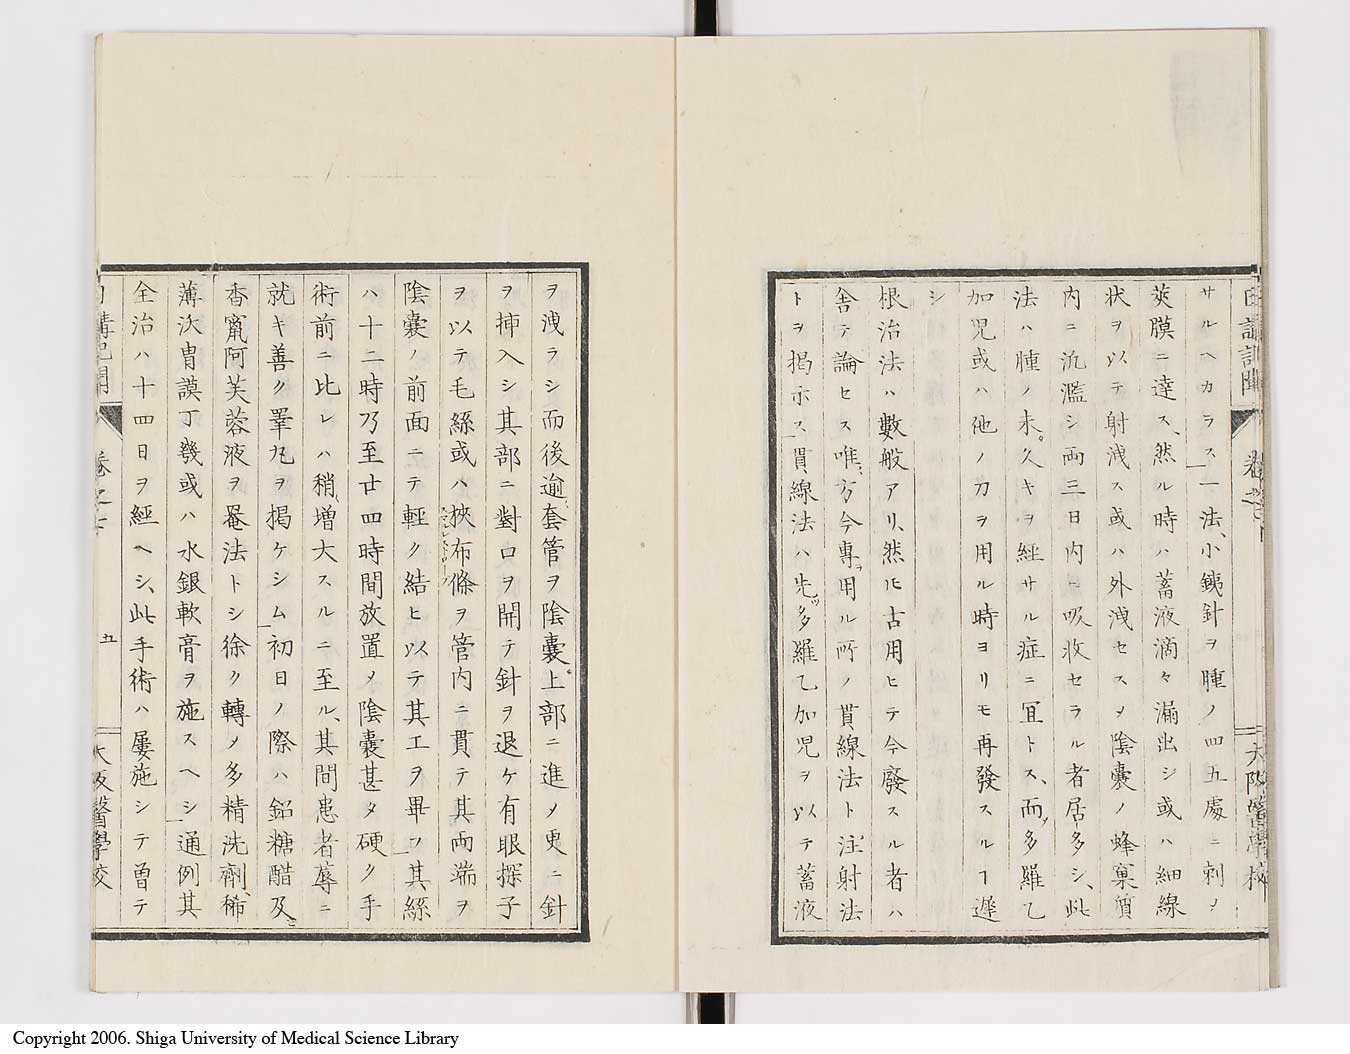 サルヘカラス一法、小銕針ヲ腫ノ四五處ニ刺メ
莢膜ニ達ス、然ル時ハ蓄液滴々漏出シ或ハ細線
状ヲ以テ射洩ス或ハ外洩セスメ陰嚢ノ蜂窠質
内ニ氿濫シ両三日内ニ吸收セラル者居多シ、此
法ハ腫ノ未。久キヲ經サル症ニ冝トス、而ノ多羅乙
加児或ハ他ノ刀ヲ用ル時ヨリモ再發スルヿ遅
シ
根治法ハ數般アリ、然㪽古用ヒテ今廢スル者ハ
舎テ論セス唯方今專ラ用ル所ノ貫線法ト注射法
トヲ掲示ス、貫線法ハ先ツ多羅乙加児ヲ以テ蓄液
日講記聞
卷之
大阪醫學校
ヲ洩ラシ而後逾套管ヲ陰嚢上部ニ進メ更ニ針
ヲ挿入シ其部ニ對口ヲ開テ針ヲ退ケ有眼探子
ヲ以テ毛絲或ハ狹布條ヲ管内ニ貫テ其両端ヲ
陰嚢ノ前面ニテ輕ク結ヒ以テ其工ヲ畢フ其絲
ハ十二時乃至廿四時間放置メ陰嚢甚タ硬ク手
術前ニ比レハ稍増大スルニ至ル、其間患者蓐ニ
就キ善ク睪丸ヲ掲ケシム初日ノ際ハ鉛糖醋及ニ
香竄阿芙蓉液ヲ罨法トシ徐ク轉メ多精洗劑、稀
薄沃胄謨丁幾或ハ水銀軟膏ヲ施スヘシ通例其
全治ハ十四日ヲ經ヘシ、此手術ハ屢施シテ曽テ
日講記聞
卷之
五
大阪醫學校
Copyright 2006. Shiga University of Medical Science Library